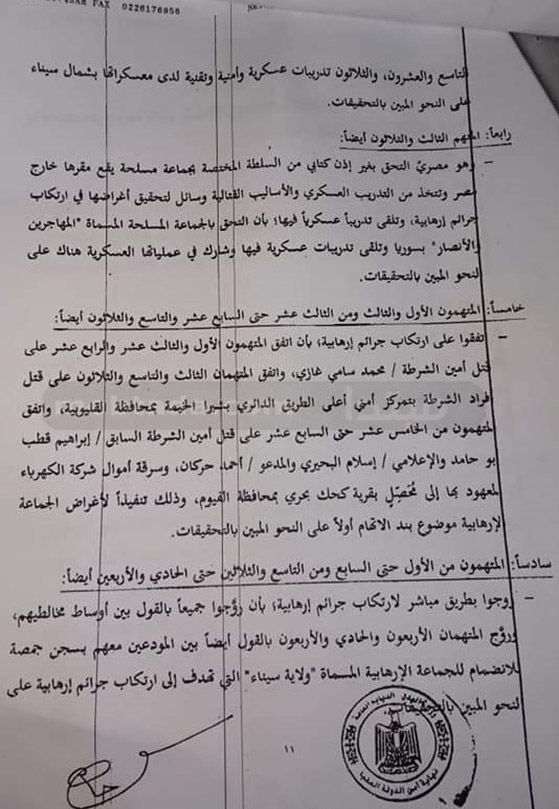 FAX 0226176956
التاسع والعشرون، والثلاثون تدريبات عسكرية وأمنية وتقنية لدى معسكراتها بشمال سيناء
على النحو المبين بالتحقيقات.
رابعاً: المتهم الثالث والثلاثون أيضاً:
– وهو مصريٌ التحق بغير إذن كتابي من السلطة المختصة بجماعة مسلحة يقع مقرها خارج
مصر وتتخذ من التدريب العسكري والأساليب القتالية وسائل لتحقيق أغراضها في ارتكاب
جرائم إرهابية، وتلقى تدريباً عسكرياً فيها؛ بأن التحق بالجماعة المسلحة المسماة "المهاجرين
والأنصار" بسوريا وتلقى تدريبات عسكرية فيها وشارك في عملياتها العسكرية هناك على
النحو المبين بالتحقيقات.
خامساً: المتهمون الأول والثالث ومن الثالث عشر حتى السابع عشر والتاسع والثلاثون أيضاً:
– اتفقوا على ارتكاب جرائم إرهابية؛ بأن اتفق المتهمون الأول والثالث عشر والرابع عشر على
قتل أمين الشرطة / محمد سامي غازي، واتفق المتهمان الثالث والتاسع والثلاثون على قتل
أفراد الشرطة بتمركز أمني أعلى الطريق الدائري بشبرا الخيمة بمحافظة القليوبية، واتفق
المتهمون من الخامس عشر حتى السابع عشر على قتل أمين الشرطة السابق / إبراهيم قطب
أبو حامد والإعلامي / إسلام البحيري والمدعو / أحمد حركان، وسرقة أموال شركة الكهرباء
المعهود بها إلى مُحَصِّلٍ بقرية كحك بحري بمحافظة الفيوم، وذلك تنفيذاً لأغراض الجماعة
الإرهابية موضوع بند الاتهام أولاً على النحو المبين بالتحقيقات.
سادساً: المتهمون من الأول حتى السابع ومن التاسع والثلاثين حتى الحادي والأربعين أيضاً:
– روجوا بطريق مباشر لارتكاب جرائم إرهابية؛ بأن روَّجوا جميعاً بالقول بين أوساط مخالطيهم،
وروَّج المتهمان الأربعون والحادي والأربعون بالقول أيضاً بين المودعين معهم بسجن جمصة
للانضمام للجماعة الإرهابية المسماة "ولاية سيناء" التي تهدف إلى ارتكاب جرائم إرهابية على
النحو المبين بالتحقيقات.
١١
نيابة أمن الدولة العليا